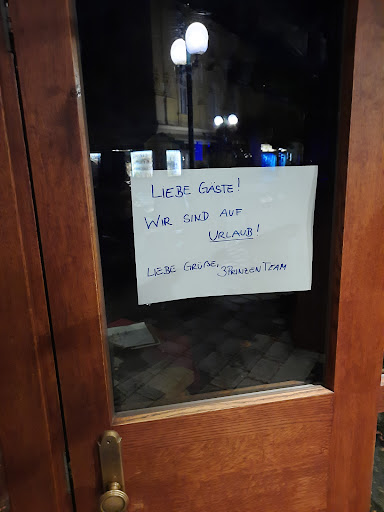 LIEBE GÄSTE!
WIR SIND AUF
URLAUB!
LIEBE GRÜßE, 3PRINZEN TEAM